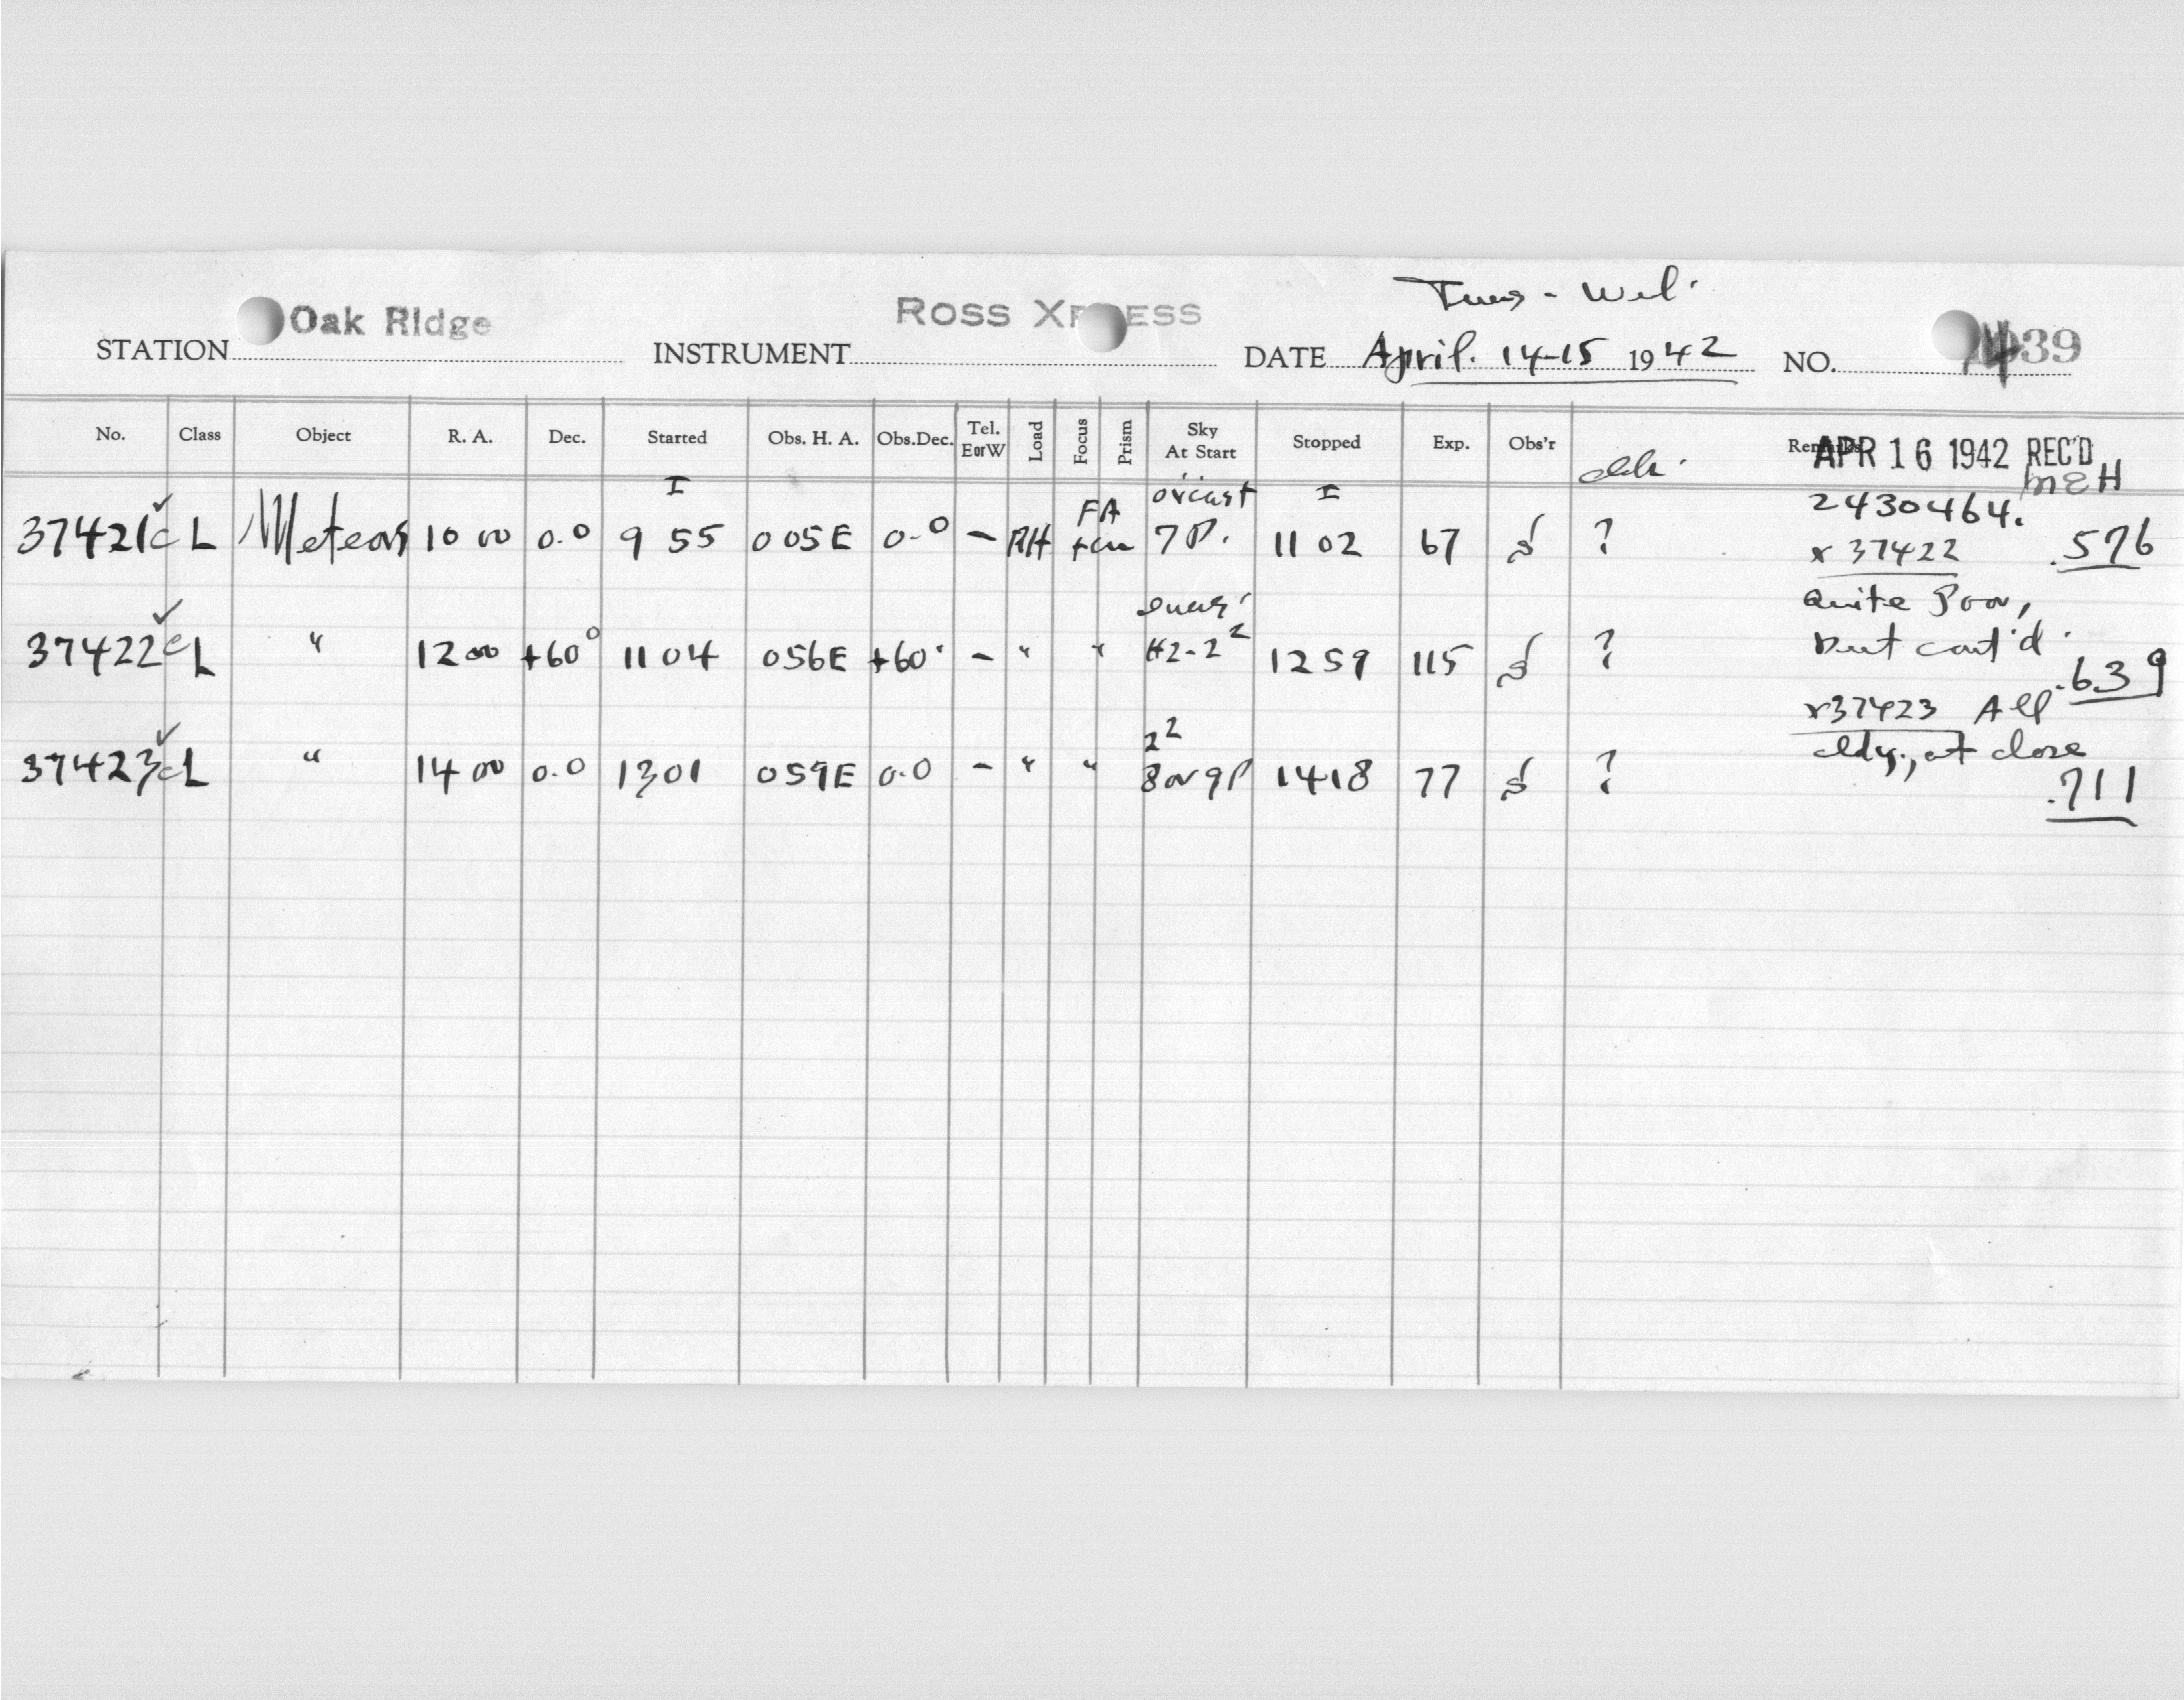 Tues - Wed.
STATION Oak Ridge INSTRUMENT ROSS XPRESS DATE April. 14-15 1942 NO. 39
No. Class Object R. A. Dec. Started Obs. H. A. Obs.Dec. Tel. E or W Load Focus Prism Sky At Start Stopped Exp. Obs'r Remarks
APR 16 1942 REC'D
MEH
I I
37421 c L Meteors 10 00 0.0 9 55 0 05 E 0.0 - RH FA ov'cast 7P. 11 02 67 ? 2430464. .576
x 37422
Quite Poor,
but cont'd.
37422 c L " 12 00 +60° 11 04 0 56 E +60° - " " 2-2² 12 59 115 ? .639
x37423 All
cldy., at close
37423 c L " 14 00 0.0 13 01 0 59 E 0.0 - " " 2² 8 or 9P 14 18 77 ? .711